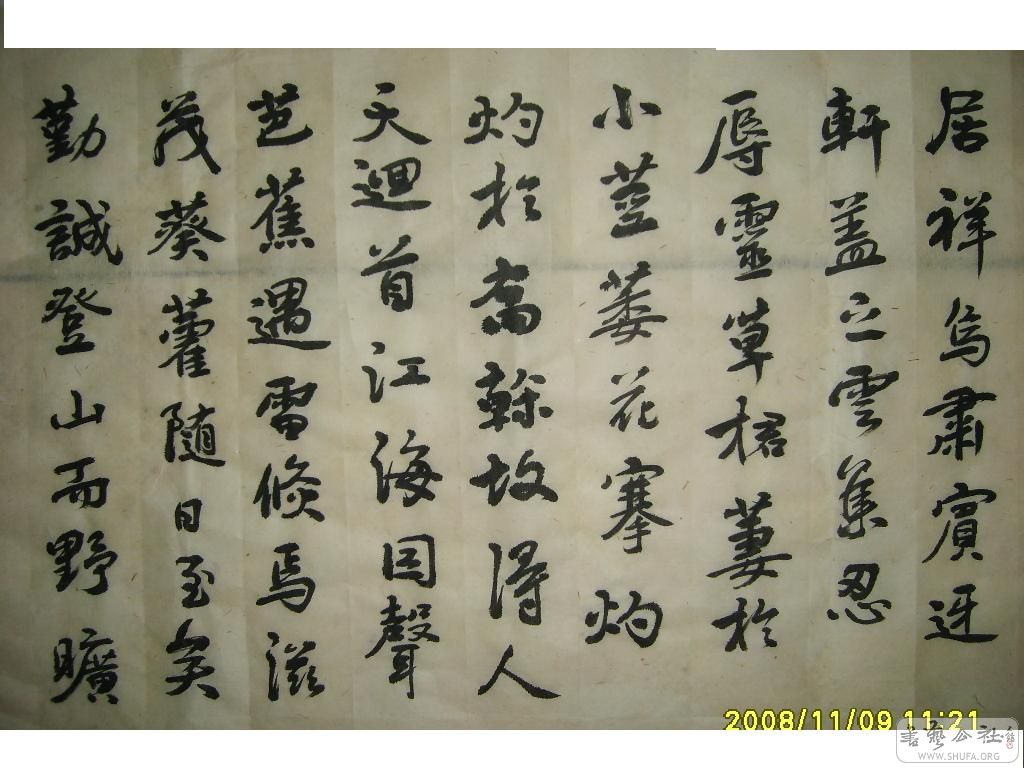 居祥烏肅賓迓
軒蓋之雲集忍
辱靈草桾萋於
小莖萎花搴灼
灼於喬榦故得人
天迴首江海因聲
芭蕉遇雷倏焉滋
茂葵藿随日至矣
勤誠登山而野曠
2008/11/09 11:21
書藝公社
WWW.SHUFA.ORG